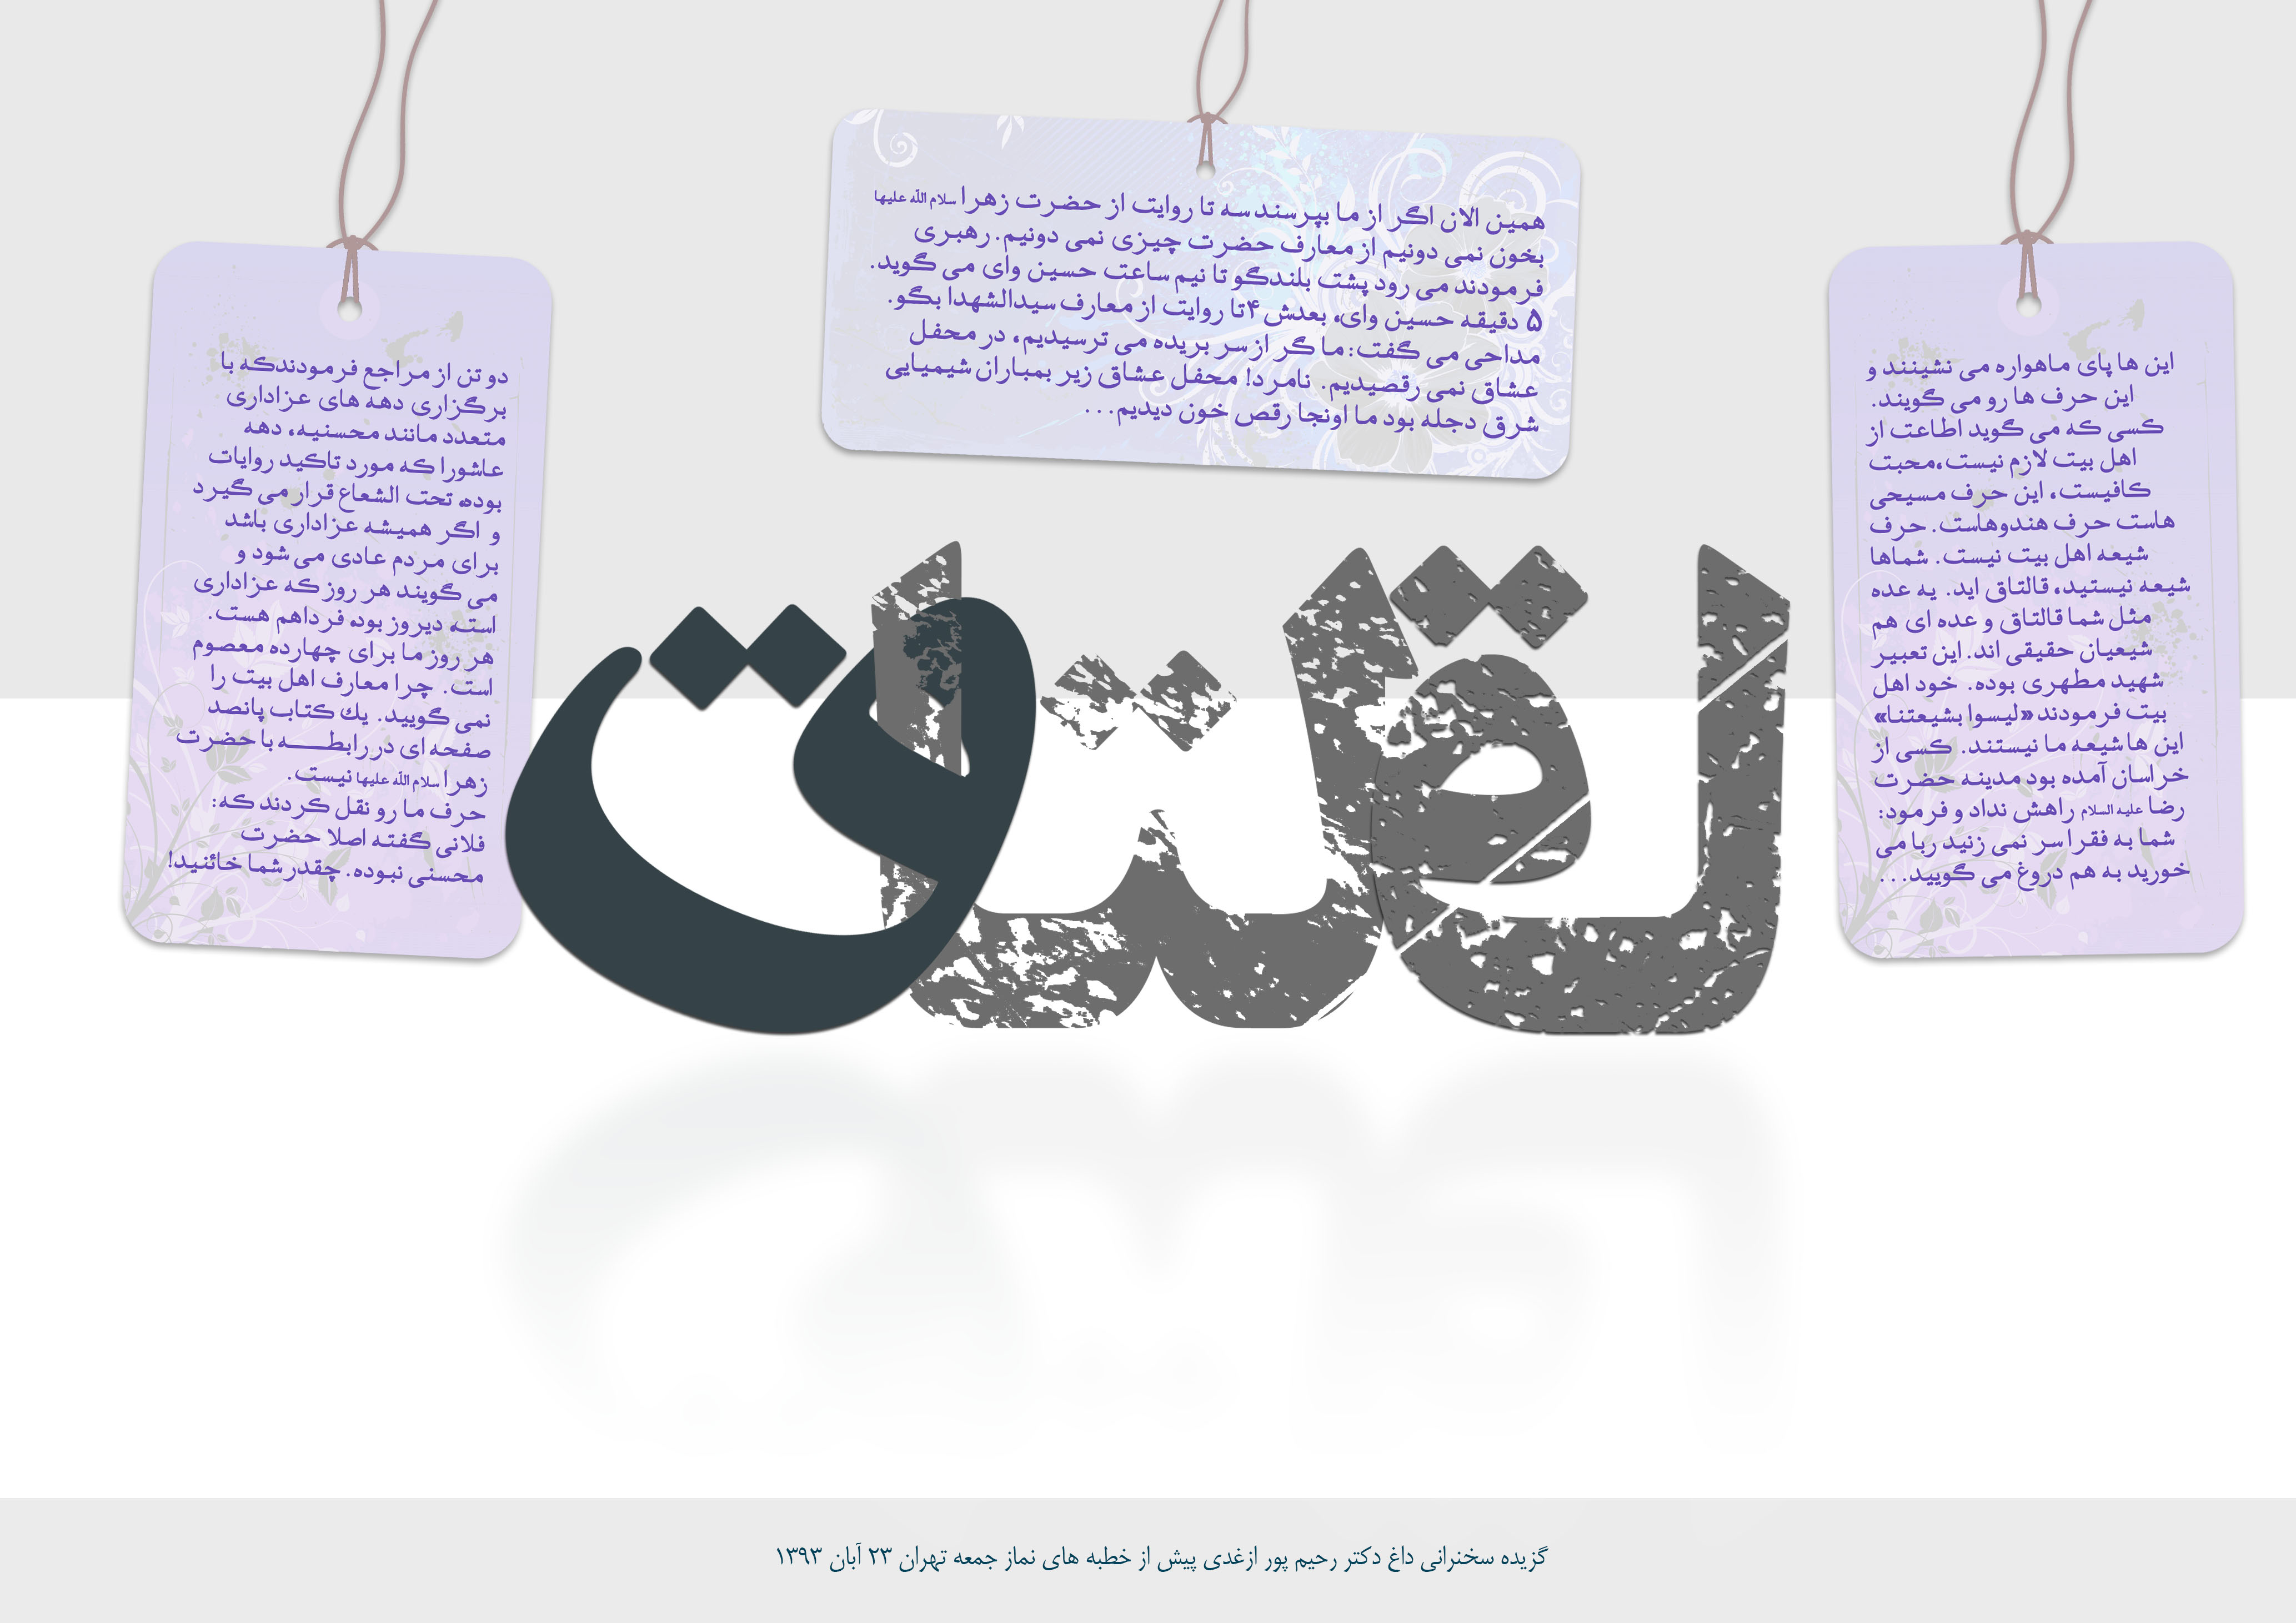 این ها پای ماهواره می نشینند و
این حرف ها رو می گویند.
کسی که می گوید اطاعت از
اهل بیت لازم نیست،محبت
کافیست، این حرف مسیحی
هاست حرف هندوهاست. حرف
شیعه اهل بیت نیست. شماها
شیعه نیستید، قالتاق اید. یه عده
مثل شما قالتاق و عده ای هم
شیعیان حقیقی اند. این تعبیر
شهید مطهری بوده. خود اهل
بیت فرمودند «لیسوا بشیعتنا»
این ها شیعه ما نیستند. کسی از
خراسان آمده بود مدینه حضرت
رضا علیه السلام راهش نداد و فرمود:
شما به فقرا سر نمی زنید ربا می
خورید به هم دروغ می گویید...
همین الان اگر از ما بپرسند سه تا روایت از حضرت زهرا سلام الله علیها
بخون نمی دونیم از معارف حضرت چیزی نمی دونیم. رهبری
فرمودند می رود پشت بلندگو تا نیم ساعت حسین وای می گوید.
۵ دقیقه حسین وای، بعدش ۴تا روایت از معارف سیدالشهدا بگو.
مداحی می گفت: ما گر از سر بریده می ترسیدیم، در محفل
عشاق نمی رقصیدیم. نامرد! محفل عشاق زیر بمباران شیمیایی
شرق دجله بود ما اونجا رقص خون دیدیم...
دو تن از مراجع فرمودندکه با
برگزاری دهه های عزاداری
متعدد مانند محسنیه، دهه
عاشورا که مورد تاکید روایات
بوده، تحت الشعاع قرار می گیرد
و اگر همیشه عزاداری باشد
برای مردم عادی می شود و
می گویند هر روز که عزاداری
است، دیروز بود، فرداهم هست.
هر روز ما برای چهارده معصوم
است. چرا معارف اهل بیت را
نمی گویید. یك کتاب پانصد
صفحه ای در رابطـــه با حضرت
زهرا سلام الله علیها نیست.
حرف ما رو نقل کردند که:
فلانی گفته اصلا حضرت
محسنی نبوده. چقدر شما خائنید!
قالتاق
گزیده سخنرانی داغ دکتر رحیم پور ازغدی پیش از خطبه های نماز جمعه تهران ۲۳ آبان ۱۳۹۳